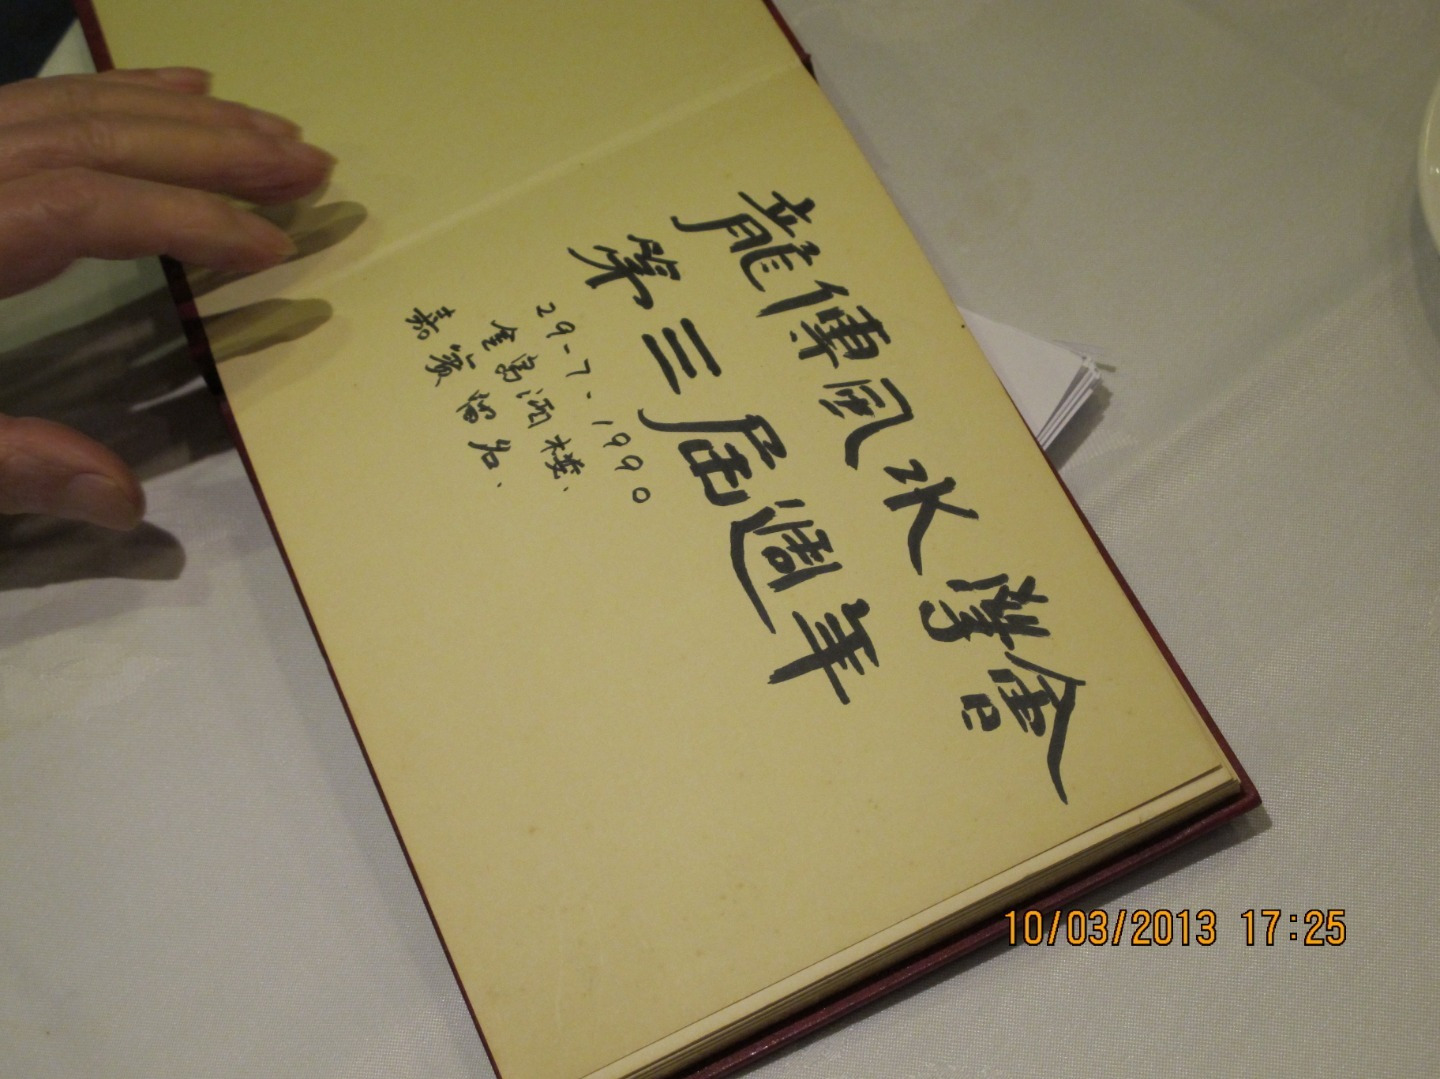 龍傳風水學會
第三屆週年
29-7-1990
金島酒楼.
嘉賓留名.
10/03/2013 17:25